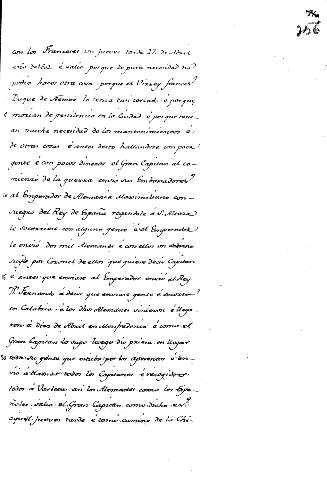 con los Franceses un jueves tarde 27 de Abril
año de 1503 é salio porque de pura necesidad no
podia hacer otra cosa porque el Visrey frances
Duque de Nemos le tenia tan cercado é porque
morian de pestilencia en la Ciudad é porque tenian
mucha necesidad de los mantenimientos é
de otras cosas é antes desto hallandose con poca
gente é con pocos dineros el Gran Capitan al comienzo
de la guerra envio sus Embaxadores
al Emperador de Alemania Maximiliano consuegro
del Rey de España rogandole á S. Alteza
le socorriese con alguna gente é el Emperador
le envio dos mil Alemanes é con ellos un
por Coronel de ellos que quiere decir Capitan
é antes que enviase al Emperador envió al Rey
Dn. Fernando á decir que enviase gente é
en Calabria é los dos mil Alemanes vinieron é llegaron
á diez de Abril en Manfredonia é como el
Gran Capitan lo supo luego dio priesa en llegar
toda su gente que estaba por los aposentos é envió
á llamar todos los Capitanes é recogidos
todos á Varleta an los Alemanes como los Españoles
salio el Gran Capitan como dicho es
aquel jueves tarde é tomo camino de la Chi-